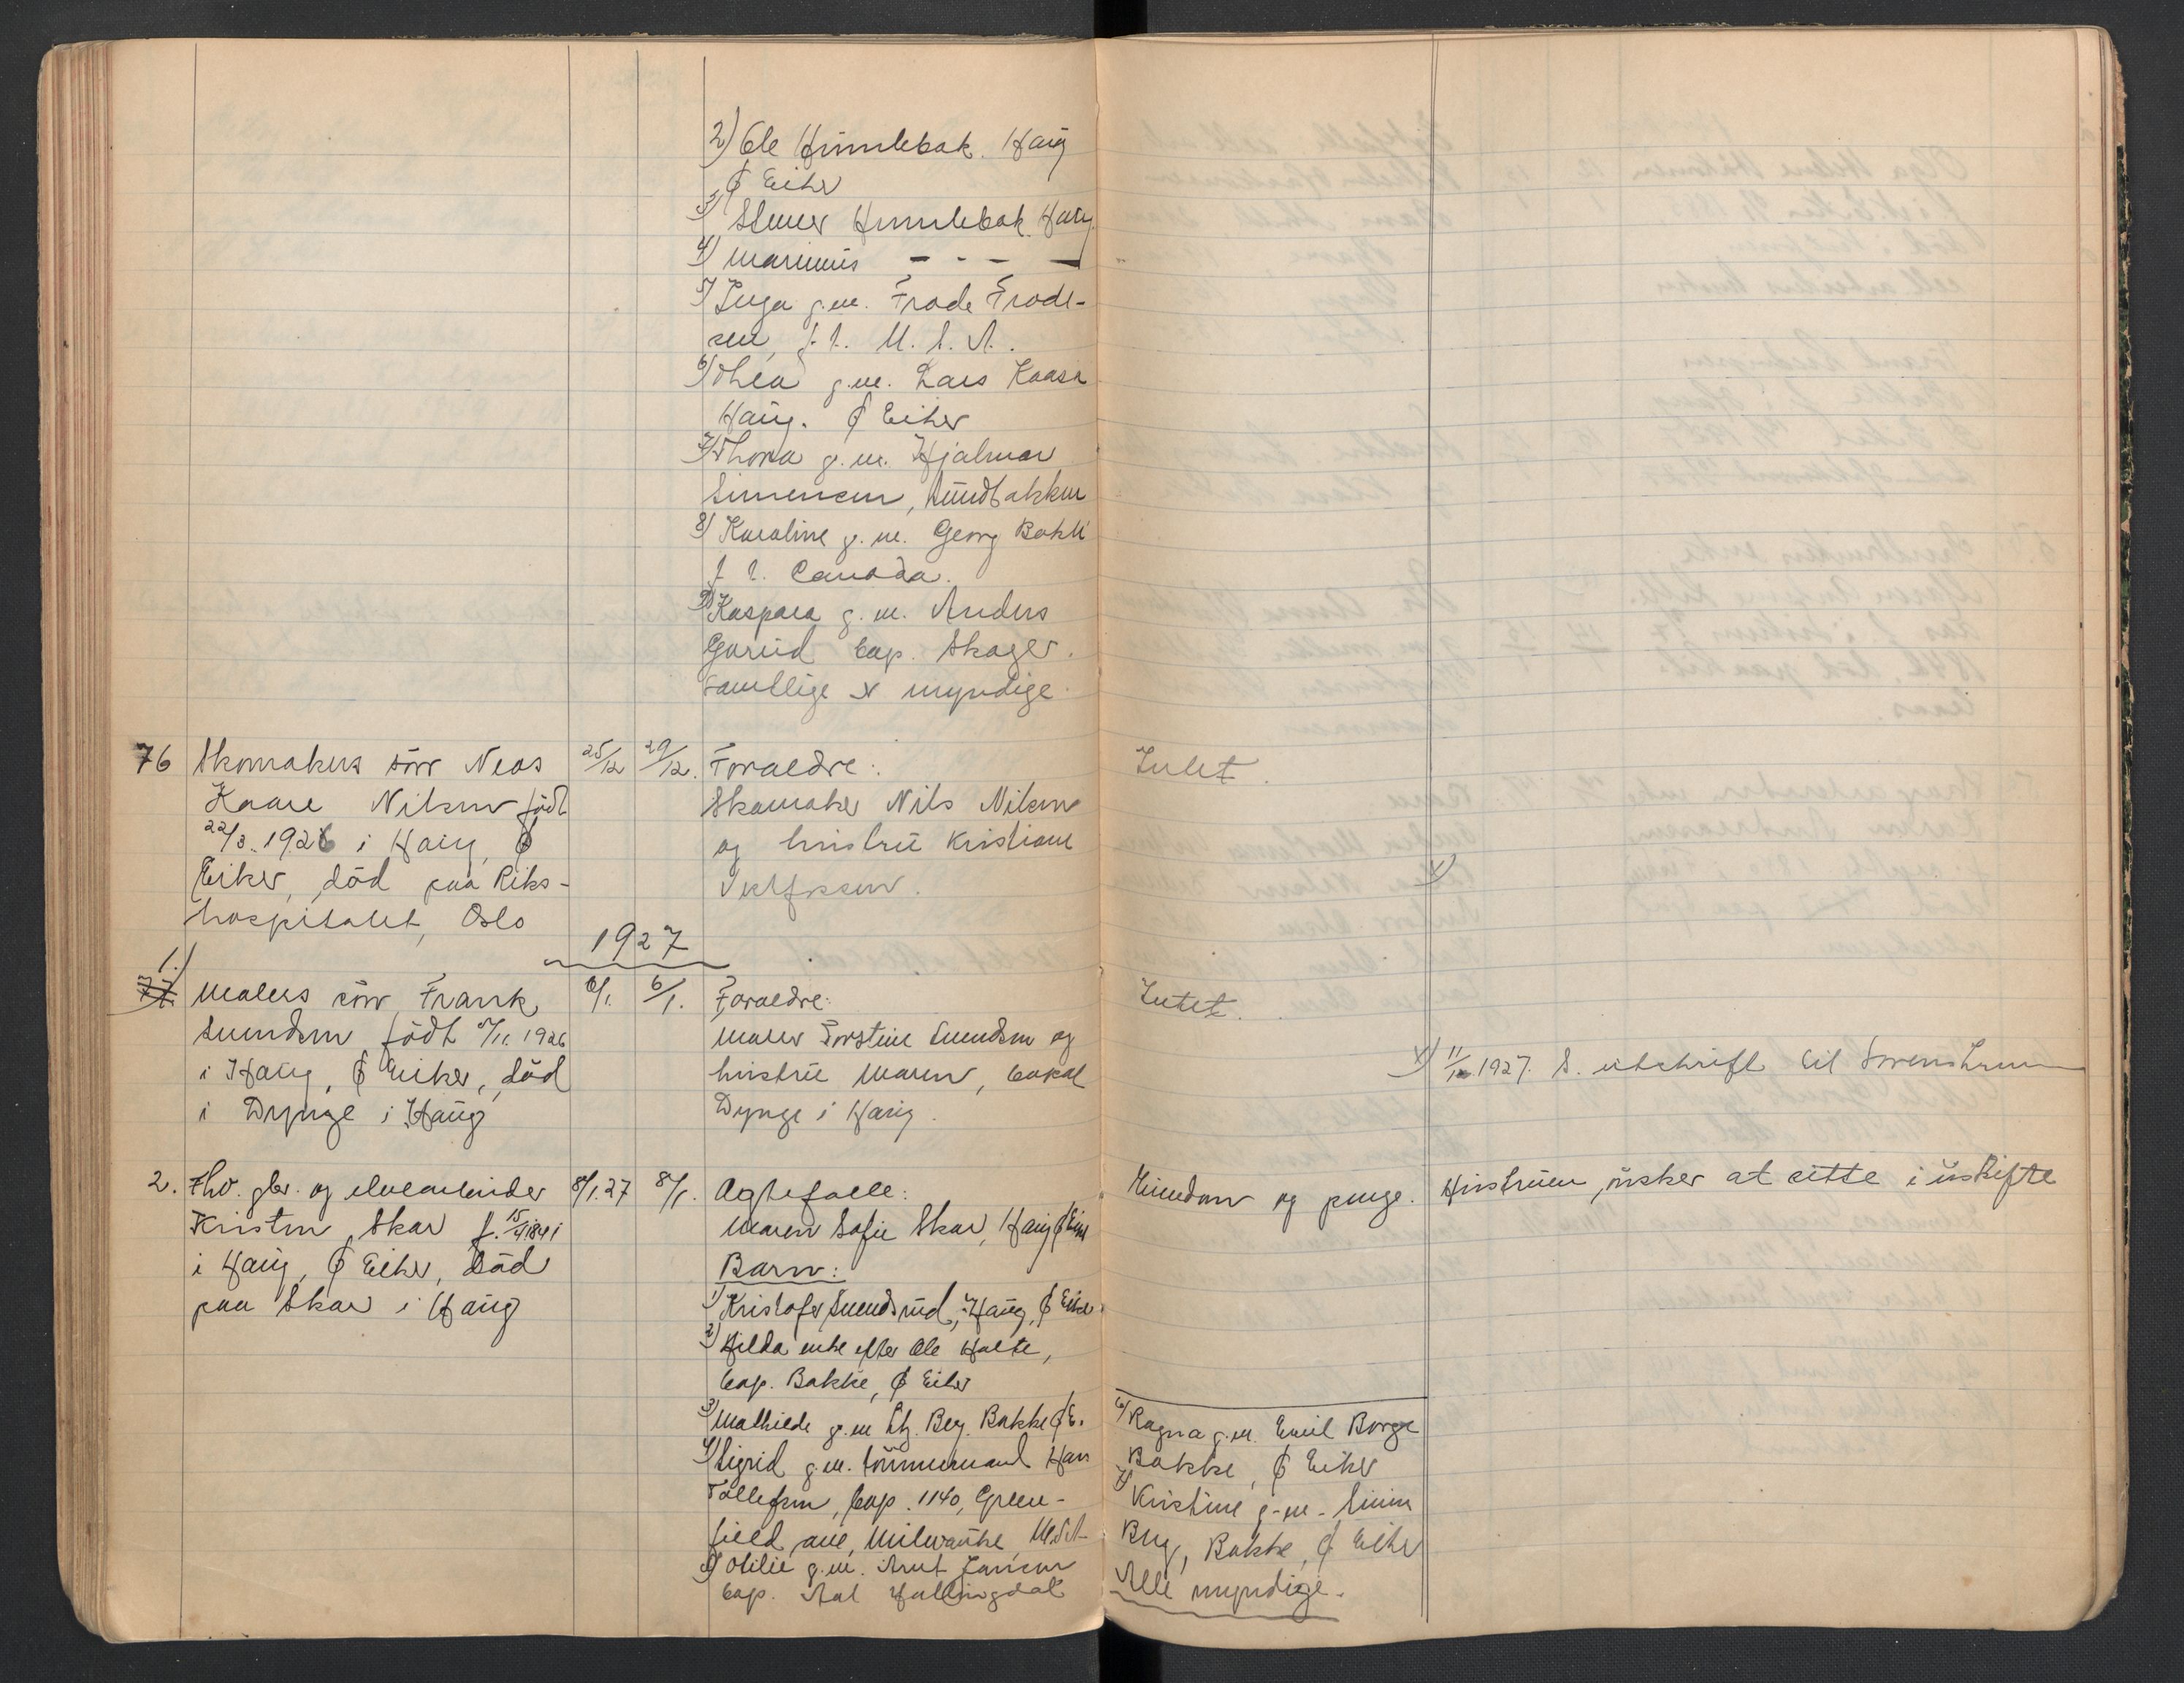 2) Ole Himlebak. Haug
Ø Eiker
3) Himlebak. Haug
4) Marinius - - - -
5) Inga g.m. Frode Frode-
sen, f. t. U. S. A.
6) Thea g.m. Lars Kaasa
Haug. Ø Eiker
7) Thora g.m. Hjalmar
Simensen, Sundbakken
8) Karoline g.m. Georg
f. t. Canada.
9) Kaspara g.m. Anders
Garud bop. Skoger.
Samtlige er myndige.
76 Skomakers søn
Kaare Nilsen født
22/3. 1926 i Haug, Ø
Eiker, död paa Riks-
hospitalet, Oslo
25/12 29/12.
Foraeldre:
Skomaker Nils Nilsen
og hustru Kristiane
Intet.
1927
1.)
77. Malers sön Frank
Svendsen født 5/11. 1926
i Haug, Ø Eiker, död
i Dynge i Haug
6/1. 6/1.
Foraeldre:
Maler Torstein Svendsen og
hustru Maren, bosat
Dynge i Haug.
Intet.
x)
x) 11/11. 1927. S. utskrift til
2. Fhv. gbr. og elvearbeider
Kristen Skar f. 15/4 1841
i Haug, Ø Eiker, död
paa Skar i Haug
8/1.27 8/1.
Aegtefaelle:
Maren Sofie Skar, Haug Ø Eiker
Barn:
1) Kristofer Svendsrud, Haug, Ø Eiker
2) Hilda enke efter Ole Holte,
bop. Bakke, Ø Eiker
3) Mathilde g.m. Berg. Bakke Ø E.
4) Sigrid g.m. tömmermand Hans
Tollefsen, bop. 1140, Green-
field ave, Milwauke, U.S.A.
5) Otilie g.m. Arnt Jansen
bop. Aal Hallingdal
Eiendom og penge.
Hustruen önsker at sitte i uskifte
6) Ragna g.m. Emil Borge
Bakke, Ø Eiker
7) Kristine g.m. Simen
Berg, Bakke, Ø Eiker
Alle myndige.